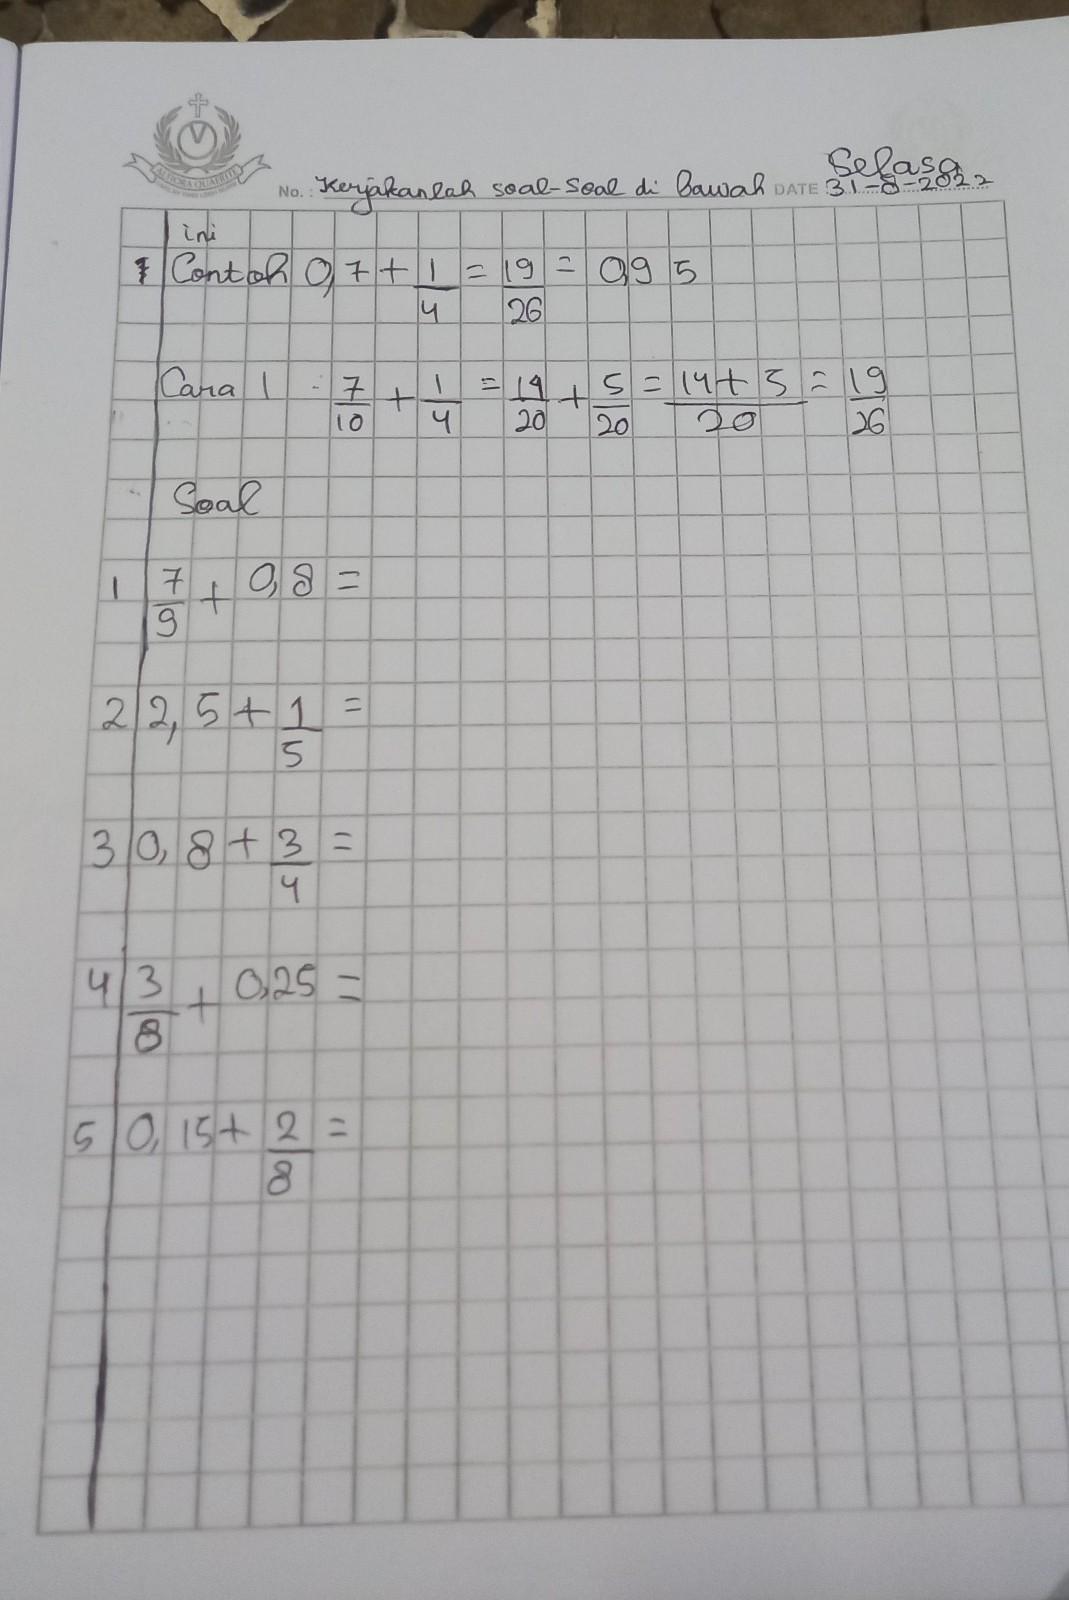 Selasa
No.: Kerjakanlah soal-soal di bawah DATE 31-8-2022
ini
Contoh 0,7 + 1/4 = 19/26 = 0,95
Cara 1 7/10 + 1/4 = 14/20 + 5/20 = 14+5/20 = 19/26
Soal
1 7/9 + 0,8 =
2 2,5 + 1/5 =
3 0,8 + 3/4 =
4 3/8 + 0,25 =
5 0,15 + 2/8 =